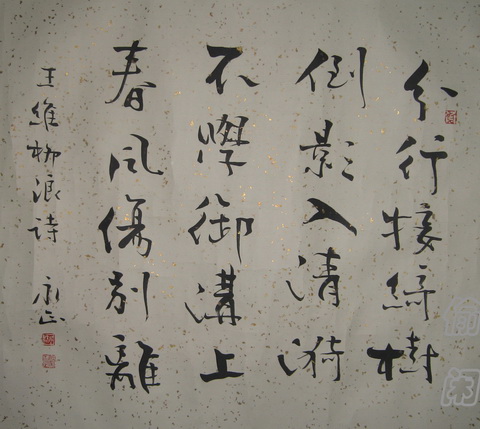 分行接綺樹
倒影入清漪
不學御溝上
春風傷別離
王維柳浪詩 永正